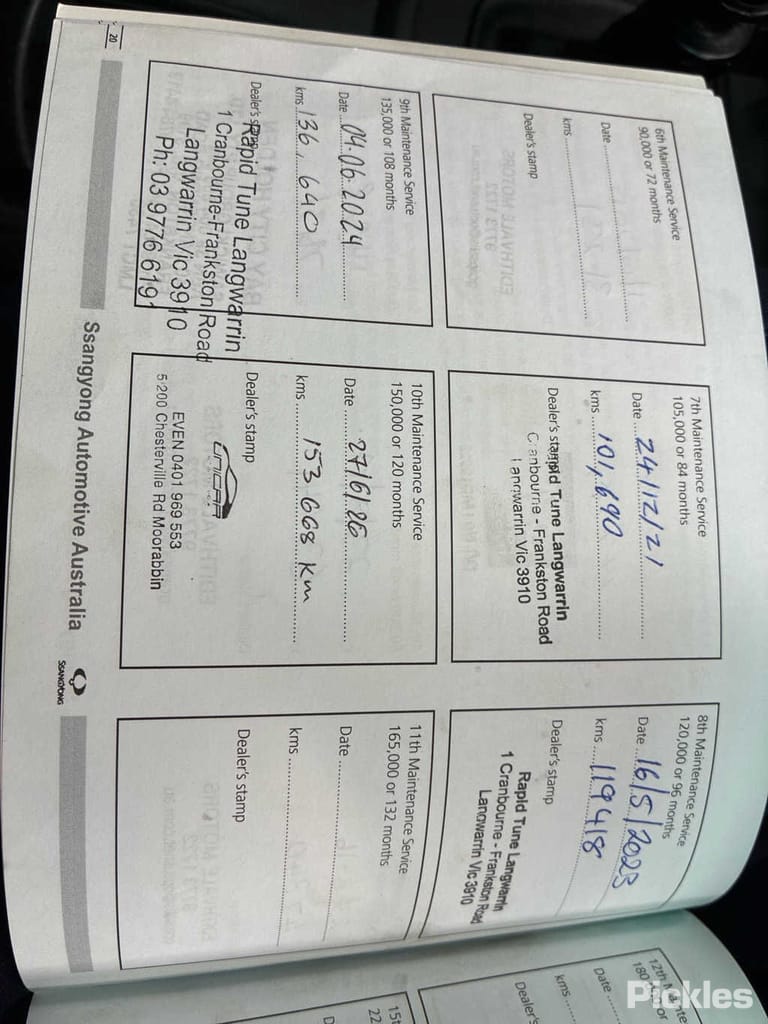 6th Maintenance Service
90,000 or 72 months
Date
kms
Dealer's stamp
7th Maintenance Service
105,000 or 84 months
Date 24/12/21
kms 101,690
Dealer's stamp
Rapid Tune Langwarrin
Cranbourne - Frankston Road
Langwarrin Vic 3910
8th Maintenance Service
120,000 or 96 months
Date 16/5/2023
kms 119418
Dealer's stamp
Rapid Tune Langwarrin
1 Cranbourne - Frankston Road
Langwarrin Vic 3910
9th Maintenance Service
135,000 or 108 months
Date 04.06.2024
kms 136,640
Dealer's stamp
Rapid Tune Langwarrin
1 Cranbourne-Frankston Road
Langwarrin Vic 3910
Ph: 03 9776 6191
10th Maintenance Service
150,000 or 120 months
Date 27/6/26
kms 153 668 Km
Dealer's stamp
UNICAR
EVEN 0401 969 553
5/200 Chesterville Rd Moorabbin
11th Maintenance Service
165,000 or 132 months
Date
kms
Dealer's stamp
20
Ssangyong Automotive Australia
SSANGYONG
12th
180
Date
kms
Dealer's
15t
22
D
Pickles